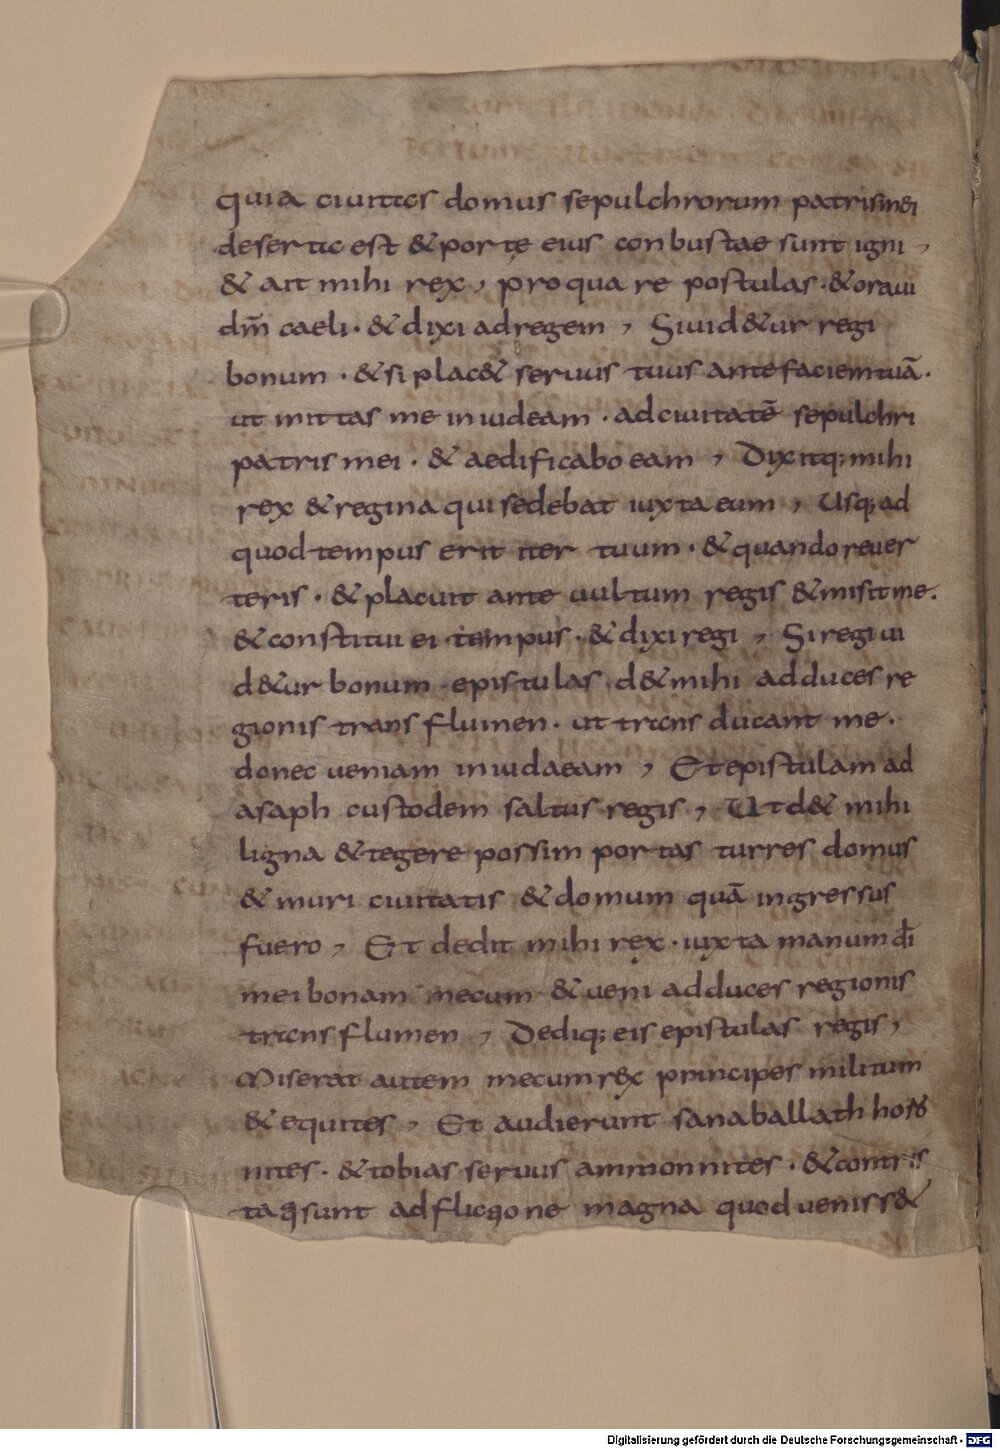 quia ciuitas domus sepulchrorum patris mei
deserta est & porte eius conbustae sunt igni ,
& ait mihi rex , pro qua re postulas · & oraui
dm̄ caeli · & dixi ad regem , Si uid&ur regi
bonum · & si plac& seruus tuus ante faciem tuā ·
ut mittas me in iudeam · ad ciuitatē sepulchri
patris mei · & aedificabo eam , Dixitq; mihi
rex & regina qui sedebat iuxta eum , Usq; ad
quod tempus erit iter tuum · & quando reuer
teris · & placuit ante uultum regis & misit me .
& constitui ei tempus · & dixi regi , Si regi ui
d&ur bonum epistulas d& mihi ad duces re
gionis trans flumen · ut trans ducant me ·
donec ueniam in iudaeam , Et epistulam ad
asaph custodem saltus regis , Ut d& mihi
ligna & tegere possim portas turres domus
& muri ciuitatis & domum quā ingressus
fuero , Et dedit mihi rex · iuxta manum dī
mei bonam mecum & ueni ad duces regionis
trans flumen , Dediq; eis epistulas regis ,
Miserat autem mecum rex principes militum
& equites , Et audierunt sanaballath horo
nites · & tobias seruus ammonnites · & contris
sunt adflictione magna quod ueniss&
Digitalisierung gefördert durch die Deutsche Forschungsgemeinschaft - DFG